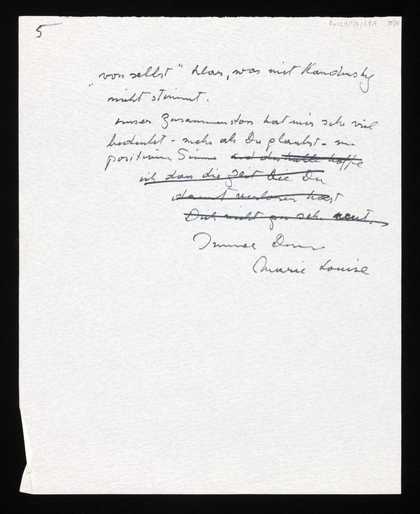 5
„von selbst" klar, was mit Kandinsky
nicht stimmt.
unser Zusammensein hat mir sehr viel
bedeutet – mehr als Du glaubst – im
positiven Sinne und ich hoffe
ich dass die Zeit die Du
damit verloren hast
Dich nicht zu sehr reut.
Immer Deine
Marie Louise